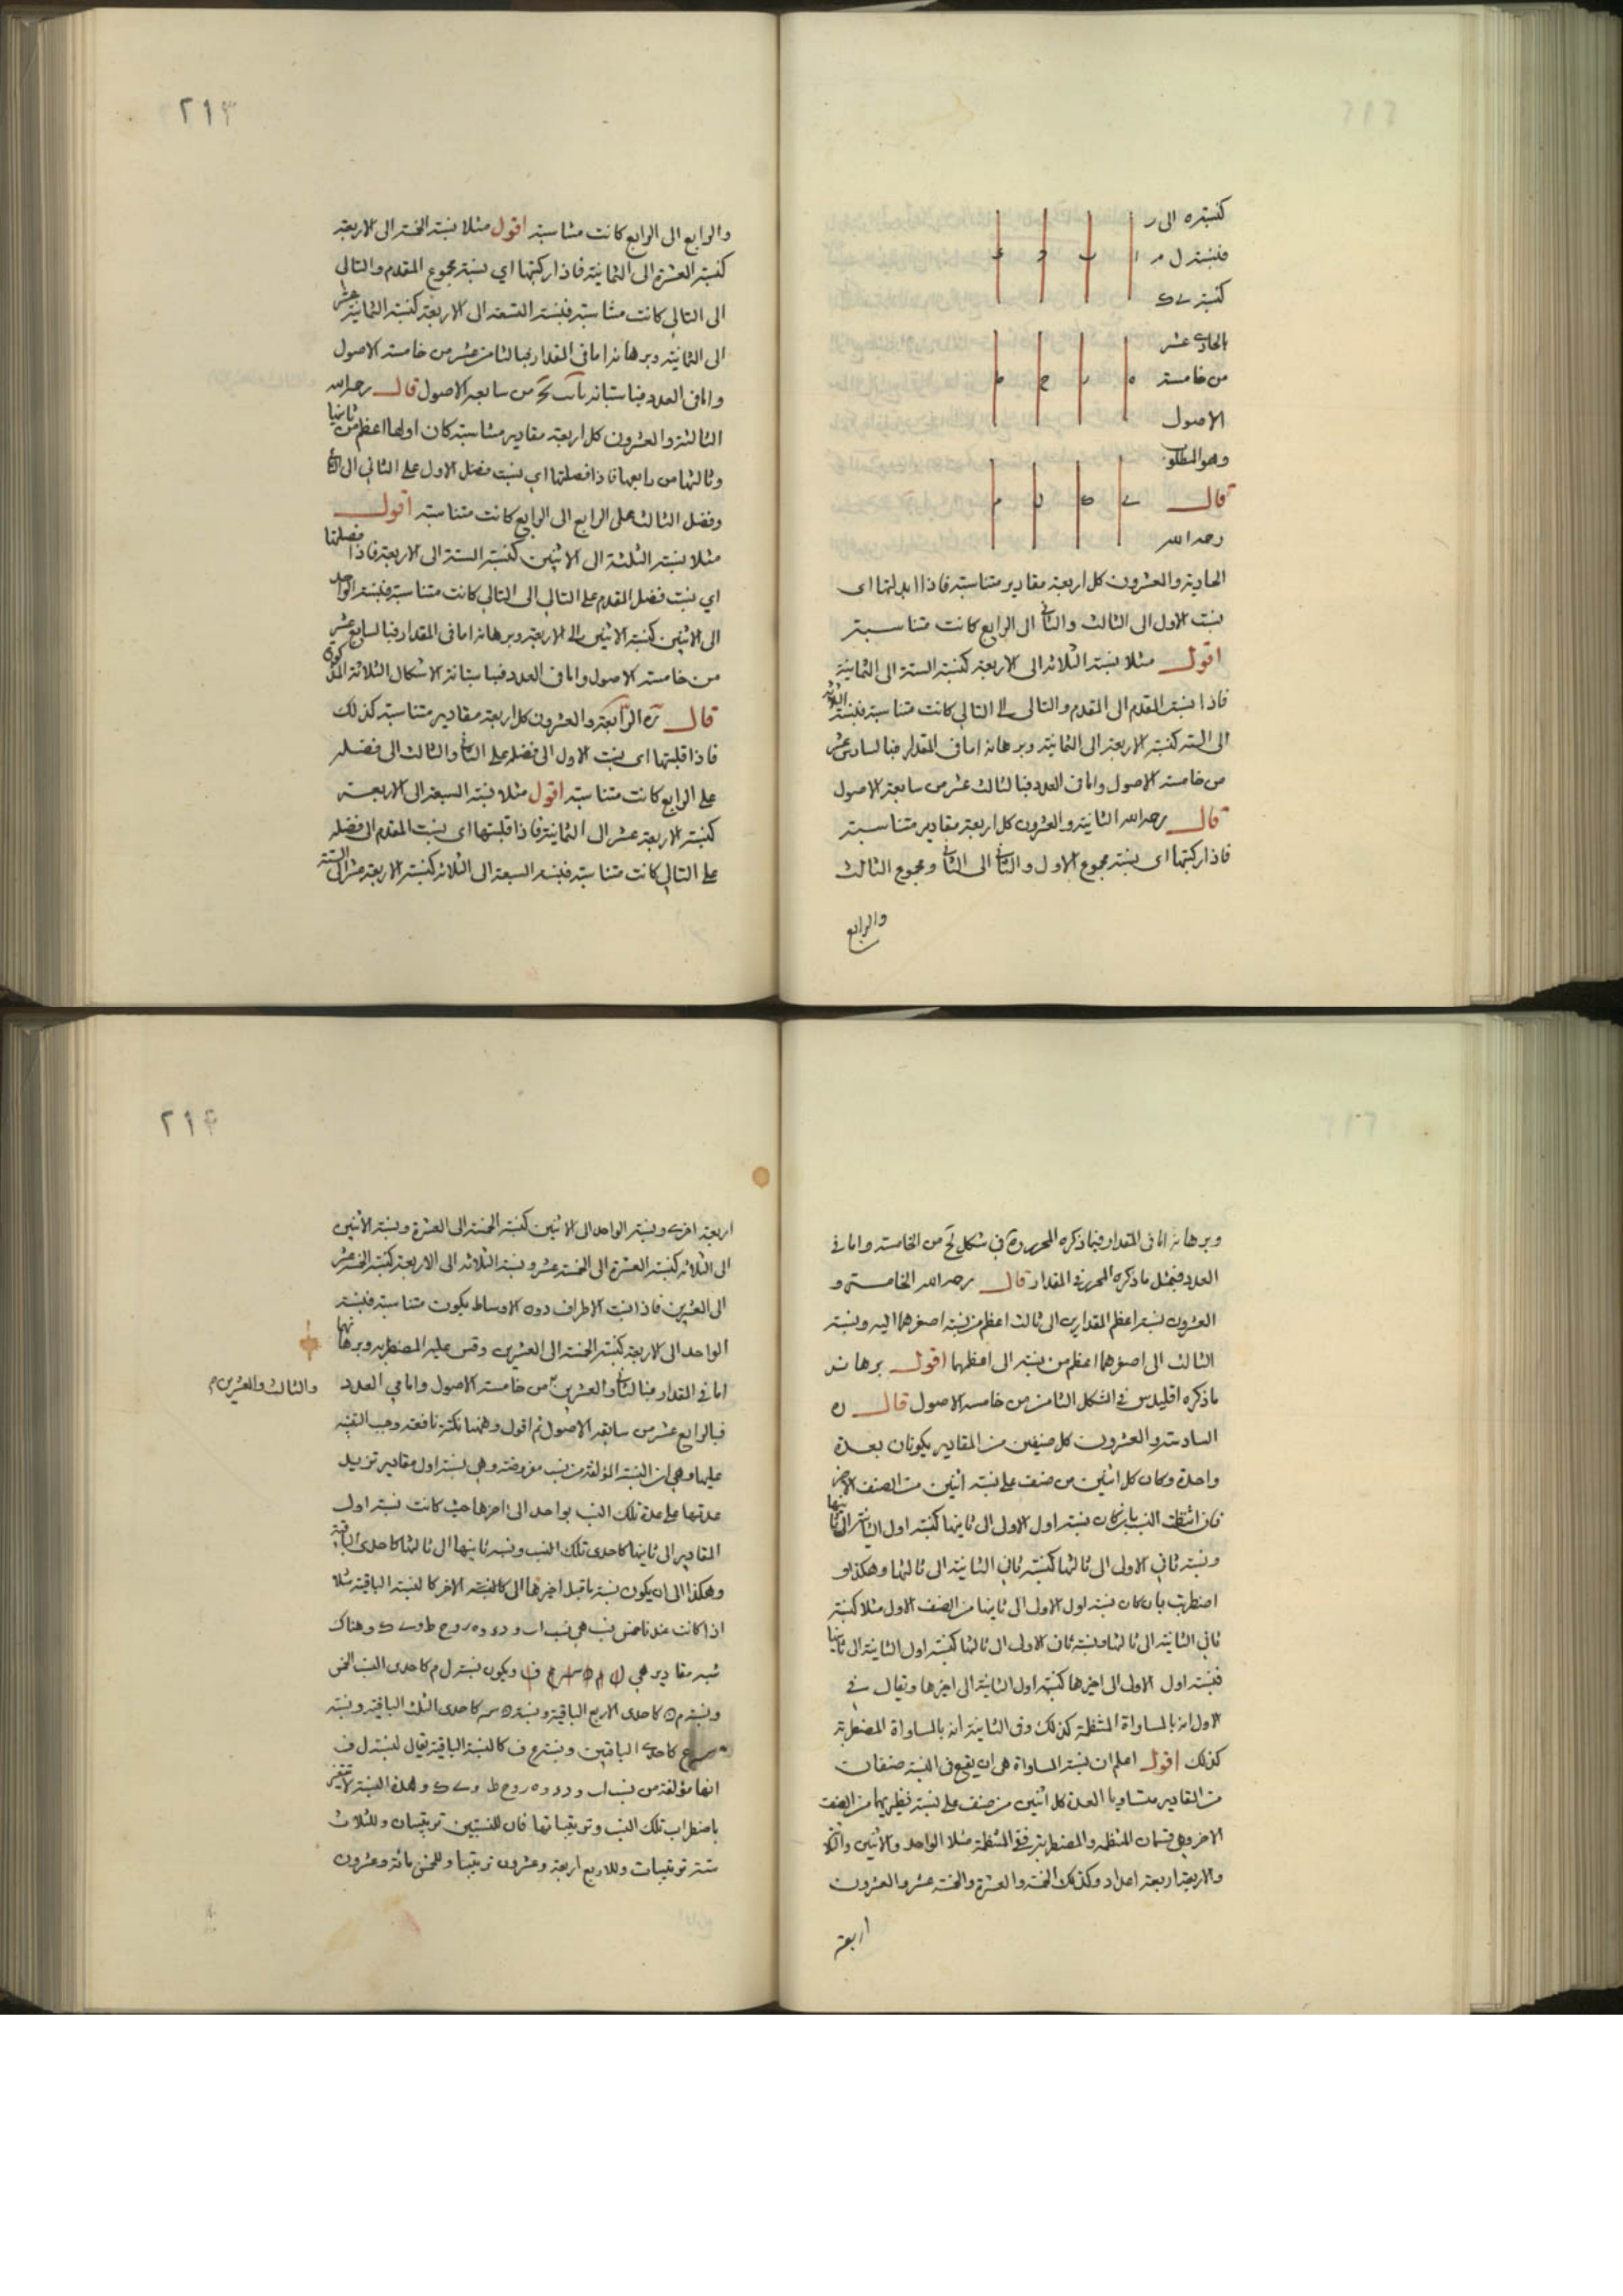 كنسبة ه الى ر
فنسبة ل م
كنسبة ى ك
الحادى عشر
من خامسة
الاصول
وهو المطلوب
قال
رحمه الله
ا ب د ء
ه ر ح ط
ى ك ل م
الحادية والعشرون كل اربعة مقادير متناسبة فاذا ابدلتها اى
نسبت الاول الى الثالث والثانى الى الرابع كانت متناسبة
اقول مثلا نسبة الثلاثة الى الاربعة كنسبة الستة الى الثمانية
فاذا نسبة المقدم الى المقدم والتالى الى التالى كانت متناسبة فنسبة الثلاثة
الى الستة كنسبة الاربعة الى الثمانية وبرهانه اما فى المقدار فبالسادس عشر
من خامسة الاصول واما فى العدد فبالثالث عشر من سابعة الاصول
قال رحمه الله الثانية والعشرون كل اربعة مقادير متناسبة
فاذا ركبتها اى نسبة مجموع الاول والثانى الى الثانى ومجموع الثالث
والرابع
٢١٣
والرابع الى الرابع كانت متناسبة اقول مثلا نسبة الخمسة الى الاربعة
كنسبة العشرة الى الثمانية فاذا ركبتها اي نسبة مجموع المقدم والتالى
الى التالى كانت متناسبة فنسبة التسعة الى الاربعة كنسبة الثمانية عشر
الى الثمانية وبرهانه اما فى المقدار فبالثامن عشر من خامسة الاصول
واما فى العدد فباستبانة من سابعة الاصول قال رحمه الله
الثالثة والعشرون كل اربعة مقادير متناسبة كان اولها اعظم من ثانيها
وثالثها من رابعها فاذا فصلتها اي نسبت فضل الاول على الثانى الى الثانى
وفضل الثالث على الرابع الى الرابع كانت متناسبة اقول
مثلا نسبة الثلثة الى الاثنين كنسبة الستة الى الاربعة فاذا فصلتها
اي نسبت فضل المقدم على التالى الى التالى كانت متناسبة فنسبة الواحد
الى الاثنين كنسبة الاثنين الى الاربعة وبرهانه اما فى المقدار فبالسابع عشر
من خامسة الاصول واما فى العدد فباستبانة الاشكال الثلاثة المذكورة
قال ره الرابعة والعشرون كل اربعة مقادير متناسبة كذلك
فاذا قلبتها اى نسبت الاول الى فضله على الثانى والثالث الى فضله
على الرابع كانت متناسبة اقول مثلا نسبة السبعة الى الاربعة
كنسبة الاربعة عشر الى الثمانية فاذا قلبتها اى نسبت المقدم الى فضله
على التالى كانت متناسبة فنسبة السبعة الى الثلاثة كنسبة الاربعة عشر الى الستة
وبرهانه اما فى المقدار فبما ذكره المحرر فى شكل من الخامسة واما فى
العدد فبمثل ما ذكره المحرر فى المقدار قال رحمه الله الخامسة و
العشرون نسبة اعظم المقدارين الى ثالث اعظم من نسبة اصغرهما اليه ونسبة
الثالث الى اصغرهما اعظم من نسبته الى اعظمهما اقول برهانه
ما ذكره اقليدس فى الشكل الثامن من خامسة الاصول قال ره
السادسة والعشرون كل صنفين من المقادير يكونان بعدة
واحدة وكان كل اثنين من صنف على نسبة اثنين من الصنف الاخر
فان انتظمت النسب بان كان نسبة اول الاولى الى ثانيها كنسبة اول الثانية الى ثانيها
ونسبة ثانى الاولى الى ثالثها كنسبة ثانى الثانية الى ثالثها وهكذا او
اضطربت بان كان نسبة اول الاولى الى ثانيها من الصنف الاول مثلا كنسبة
ثانى الثانية الى ثالثها ونسبة ثانى الاولى الى ثالثها كنسبة اول الثانية الى ثانيها
فنسبة اول الاولى الى اخيرها كنسبة اول الثانية الى اخيرها ويقال فى
الاول انه بالمساواة المنتظمة كذلك وفى الثانية انه بالمساواة المضطربة
كذلك اقول اعلم ان نسبة المساواة هى ان يقع فى النسبة صنفان
من المقادير متساويا العدة كل اثنين من صنف على نسبة نظيريهما من الصنف
الاخر وهى قسمان المنتظمة والمضطربة ففى المنتظمة مثلا الواحد والاثنين والثلاثة
والاربعة اربعة اعداد وكذلك الخمسة والعشرة والخمسة عشر والعشرون
اربعة
٢١٤
اربعة اخرى ونسبة الواحد الى الاثنين كنسبة الخمسة الى العشرة ونسبة الاثنين
الى الثلاثة كنسبة العشرة الى الخمسة عشر ونسبة الثلاثة الى الاربعة كنسبة الخمسة عشر
الى العشرين فاذا نسبت الاطراف دون الاوساط يكون متناسبة فنسبة
الواحد الى الاربعة كنسبة الخمسة الى العشرين وقس عليه المضطربة وبرهانها
اما فى المقدار فبالثانى والعشرين من خامسة الاصول واما فى العدد
والثالث والعشرين م
فبالرابع عشر من سابعة الاصول ثم اقول وههنا نكتة نافعة وجب التنبيه
عليها وهى ان النسبة المؤلفة من نسب مفروضة وهى نسبة اول مقادير تزيد
عدتها على عدة تلك النسب بواحد الى اخرها حيث كانت نسبة اول
المقادير الى ثانيها كاحدى تلك النسب ونسبة ثانيها الى ثالثها كاحدى الباقية
وهكذا الى ان يكون نسبة ما قبل اخيرهما الى الاخر كالنسبة الباقية مثلا
اذا كانت عندنا خمس نسب هى نسب اب و دء و ه ر و ح ط و ى ك وهناك
ستة مقادير هى ل م ن س ع ف ويكون نسبة ل م كاحدى النسب الخمس
ونسبة م ن كاحدى الاربع الباقية ونسبة ن س كاحدى الثلث الباقية ونسبة
س ع كاحدى الباقيتين ونسبة ع ف كالنسبة الباقية يقال لنسبة ل ف
انها مؤلفة من نسب اب و دء و ه ر و ح ط و ى ك وهذه النسبة لا تتغير
باضطراب تلك النسب وترتيباتها فان للنسبتين ترتيبان وللثلاث
ستة ترتيبات وللاربع اربعة وعشرون ترتيبا وللخمس مائة وعشرون